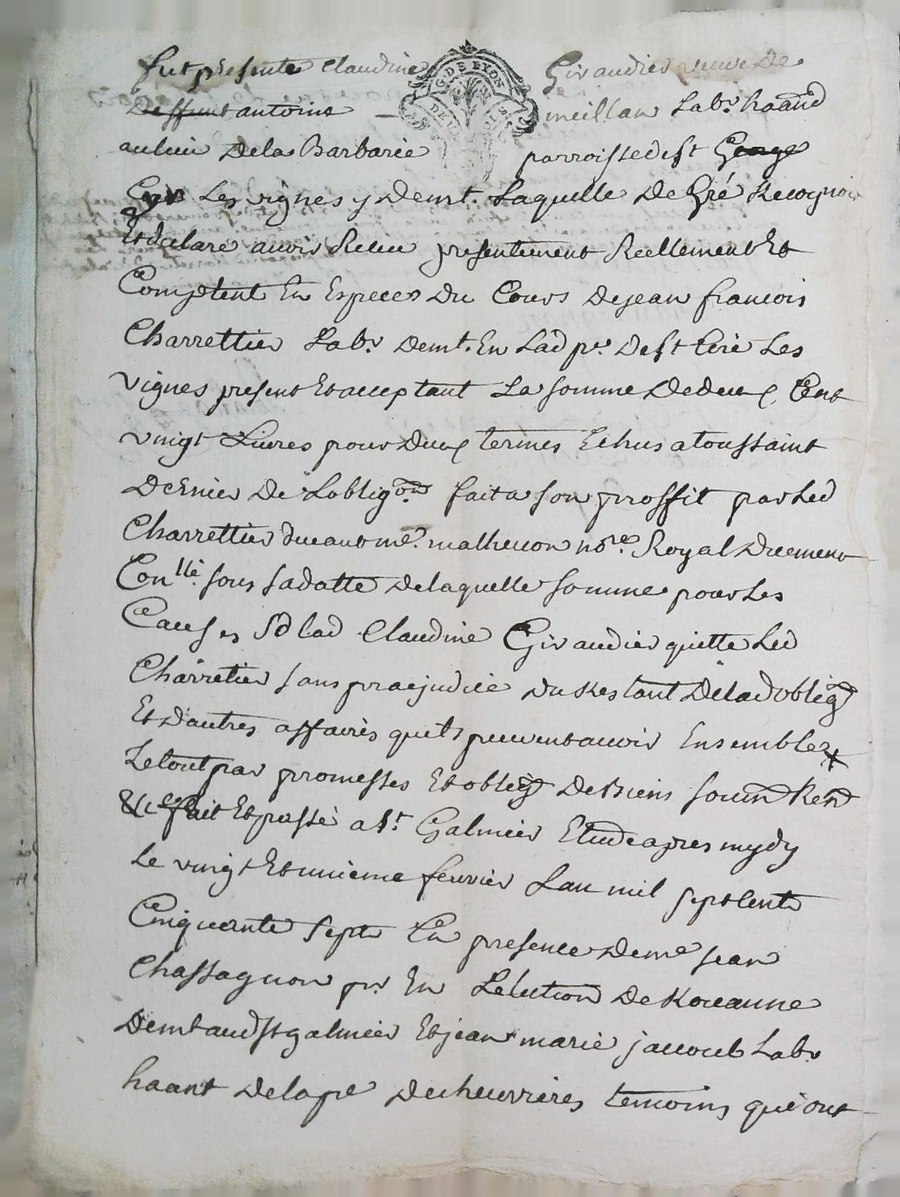 fut presente Claudine Giraudier veuve de
deffunt antoine meillan Labr. haand
au lieu De la Barbarie parroisse de st George
Cyr Les vignes y Demt. Laquelle De Gré Recognoit
Et declare avoir Receu presentement Reellement Et
Comptent En Especes Du Cours De jean francois
Charrettier Labr Demt. En Lad pe. De st Cire Les
vignes present Et acceptant La somme De deux Cent
vingt Livres pour Deux termes Echus a toussaint
Dernier De Lobligon fait a son proffit par Led
Charrettier devant me. malhenon nore. Royal Duement
Conllé sous sa datte De laquelle somme pour Les
Causes sd lad Claudine Giraudier quitte Led
Charretier sans praejudice du Restant De lad oblig
Et D'autres affaires quils peuvent avoir Ensemble
Le tout par promesses Et oblig De Biens soum Ren
&c fait Et passé a st. Galmier Etude apres mydy
Le vingt Et unieme fevrier Lan mil sept Cents
Cinquante sept En presence De me jean
Chassagnon pr En Lelection De Roüanne
Demt aud st galmier Et jean marie jacoud Labr
haant De la pe De chevrieres temoins qui ont
G. DE LYON